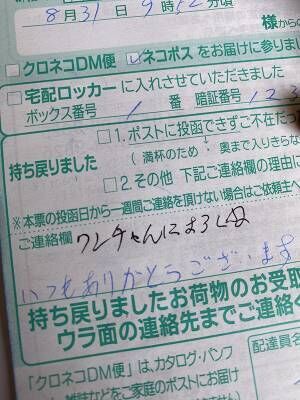 8月31日9時52分頃
様から
クロネコDM便 ネコポスをお届けに参りまし
宅配ロッカーに入れさせていただきました
ボックス番号 1 番 暗証番号 123
持ち戻りました
1. ポストに投函できずご不在だった
(満杯のため 奥まで入りきらな
2. その他 下記ご連絡欄の理由に
※本票の投函日から一週間ご連絡を頂けない場合はご依頼主へ
ご連絡欄 ワンチャんに
いつもありがとうございます
持ち戻りましたお荷物のお受取
ウラ面の連絡先までご連絡
「クロネコDM便」は、カタログ・パンフ
雑誌などをご家庭のポストにお届け
配達員名